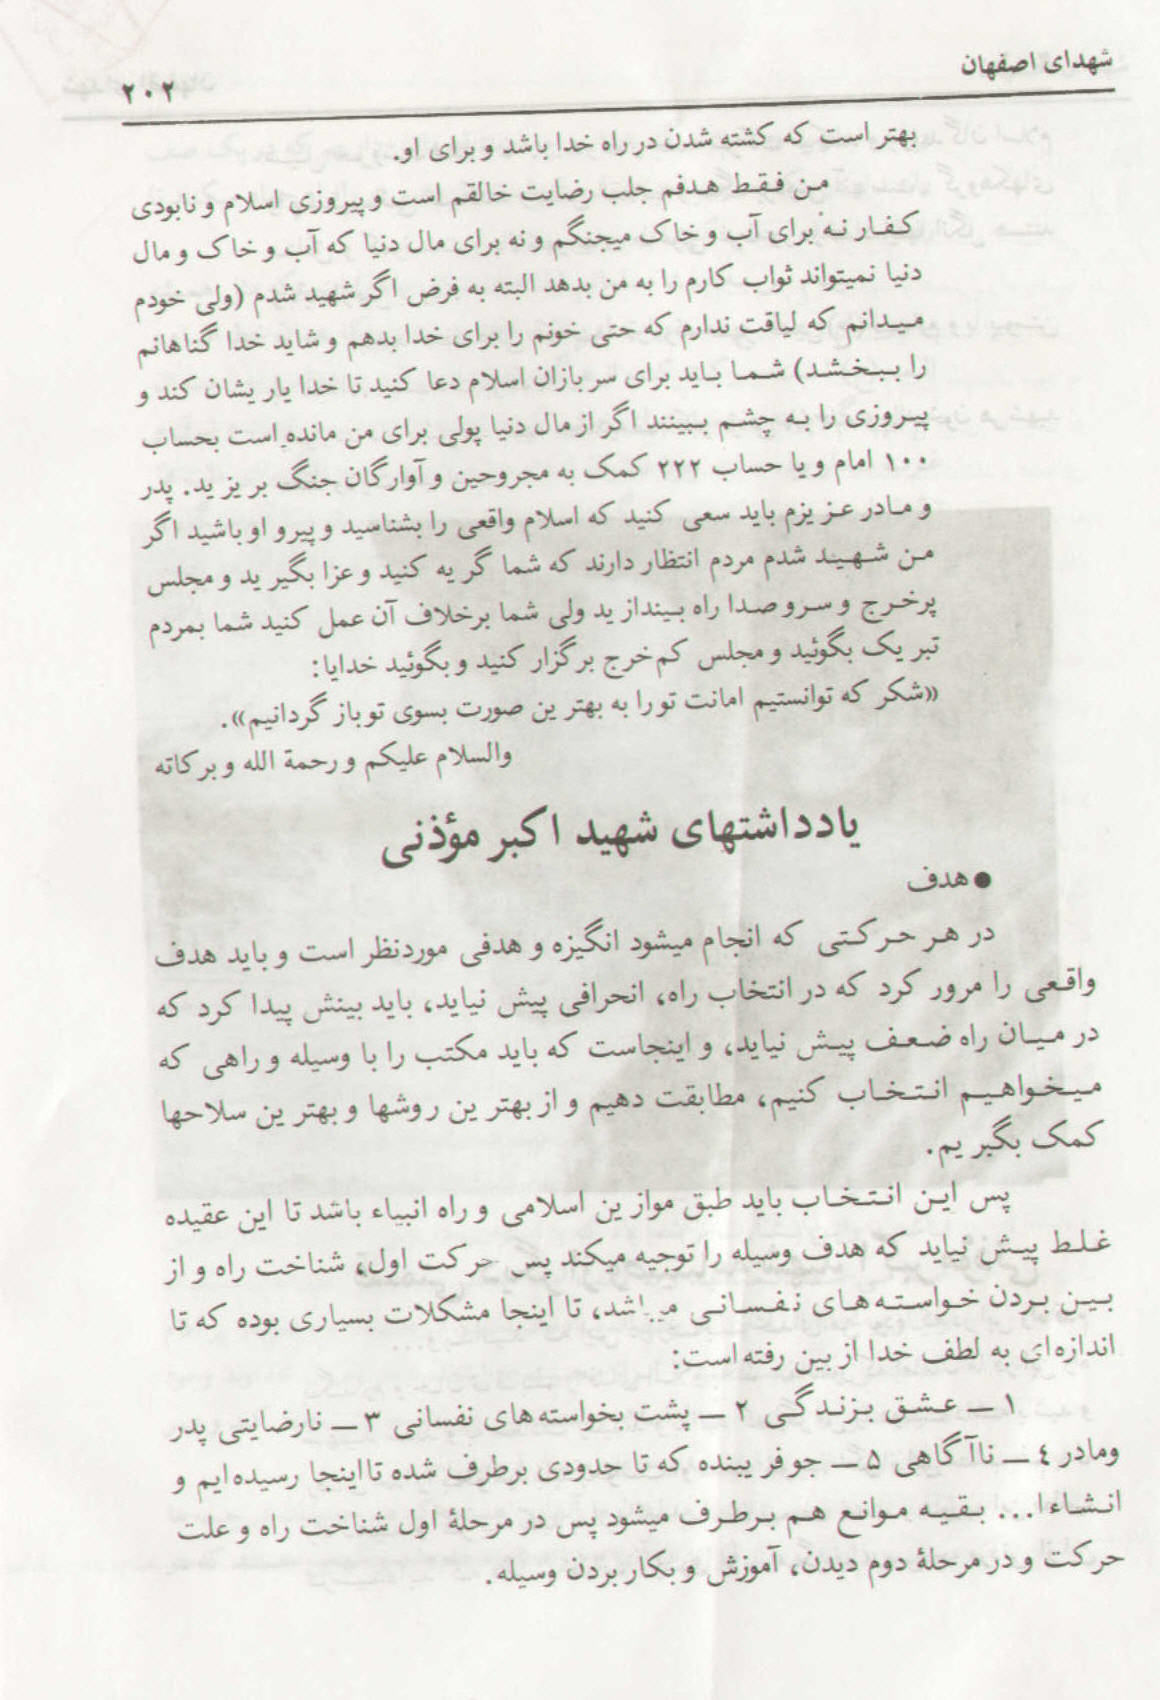 شهدای اصفهان
۲۰۲
بهتر است که کشته شدن در راه خدا باشد و برای او.
من فقط هدفم جلب رضایت خالقم است و پیروزی اسلام و نابودی
کفار نه برای آب و خاک میجنگم و نه برای مال دنیا که آب و خاک و مال
دنیا نمیتواند ثواب کارم را به من بدهد البته به فرض اگر شهید شدم (ولی خودم
میدانم که لیاقت ندارم که حتی خونم را برای خدا بدهم و شاید خدا گناهانم
را ببخشد) شما باید برای سربازان اسلام دعا کنید تا خدا یاریشان کند و
پیروزی را به چشم ببینند اگر از مال دنیا پولی برای من مانده است بحساب
۱۰۰ امام و یا حساب ۲۲۲ کمک به مجروحین و آوارگان جنگ بریزید. پدر
و مادر عزیزم باید سعی کنید که اسلام واقعی را بشناسید و پیرو او باشید اگر
من شهید شدم مردم انتظار دارند که شما گریه کنید و عزا بگیرید و مجلس
پرخرج و سروصدا راه بیندازید ولی شما برخلاف آن عمل کنید شما بمردم
تبریک بگوئید و مجلس کم خرج برگزار کنید و بگوئید خدایا:
«شکر که توانستیم امانت تو را به بهترین صورت بسوی تو باز گردانیم».
والسلام علیکم و رحمة الله و برکاته
یادداشتهای شهید اکبر مؤذنی
● هدف
در هر حرکتی که انجام میشود انگیزه و هدفی موردنظر است و باید هدف
واقعی را مرور کرد که در انتخاب راه، انحرافی پیش نیاید، باید بینش پیدا کرد که
در میان راه ضعف پیش نیاید، و اینجاست که باید مکتب را با وسیله و راهی که
میخواهیم انتخاب کنیم، مطابقت دهیم و از بهترین روشها و بهترین سلاحها
کمک بگیریم.
پس این انتخاب باید طبق موازین اسلامی و راه انبیاء باشد تا این عقیده
غلط پیش نیاید که هدف وسیله را توجیه میکند پس حرکت اول، شناخت راه و از
بین بردن خواسته‌های نفسانی میباشد، تا اینجا مشکلات بسیاری بوده که تا
اندازه‌ای به لطف خدا از بین رفته است:
۱ — عشق بزندگی ۲ — پشت بخواسته‌های نفسانی ۳ — نارضایتی پدر
ومادر ۴ — ناآگاهی ۵ — جو فریبنده که تا حدودی برطرف شده تا اینجا رسیده‌ایم و
انشاءا... بقیه موانع هم برطرف میشود پس در مرحلهٔ اول شناخت راه و علت
حرکت و در مرحلهٔ دوم دیدن، آموزش و بکار بردن وسیله.